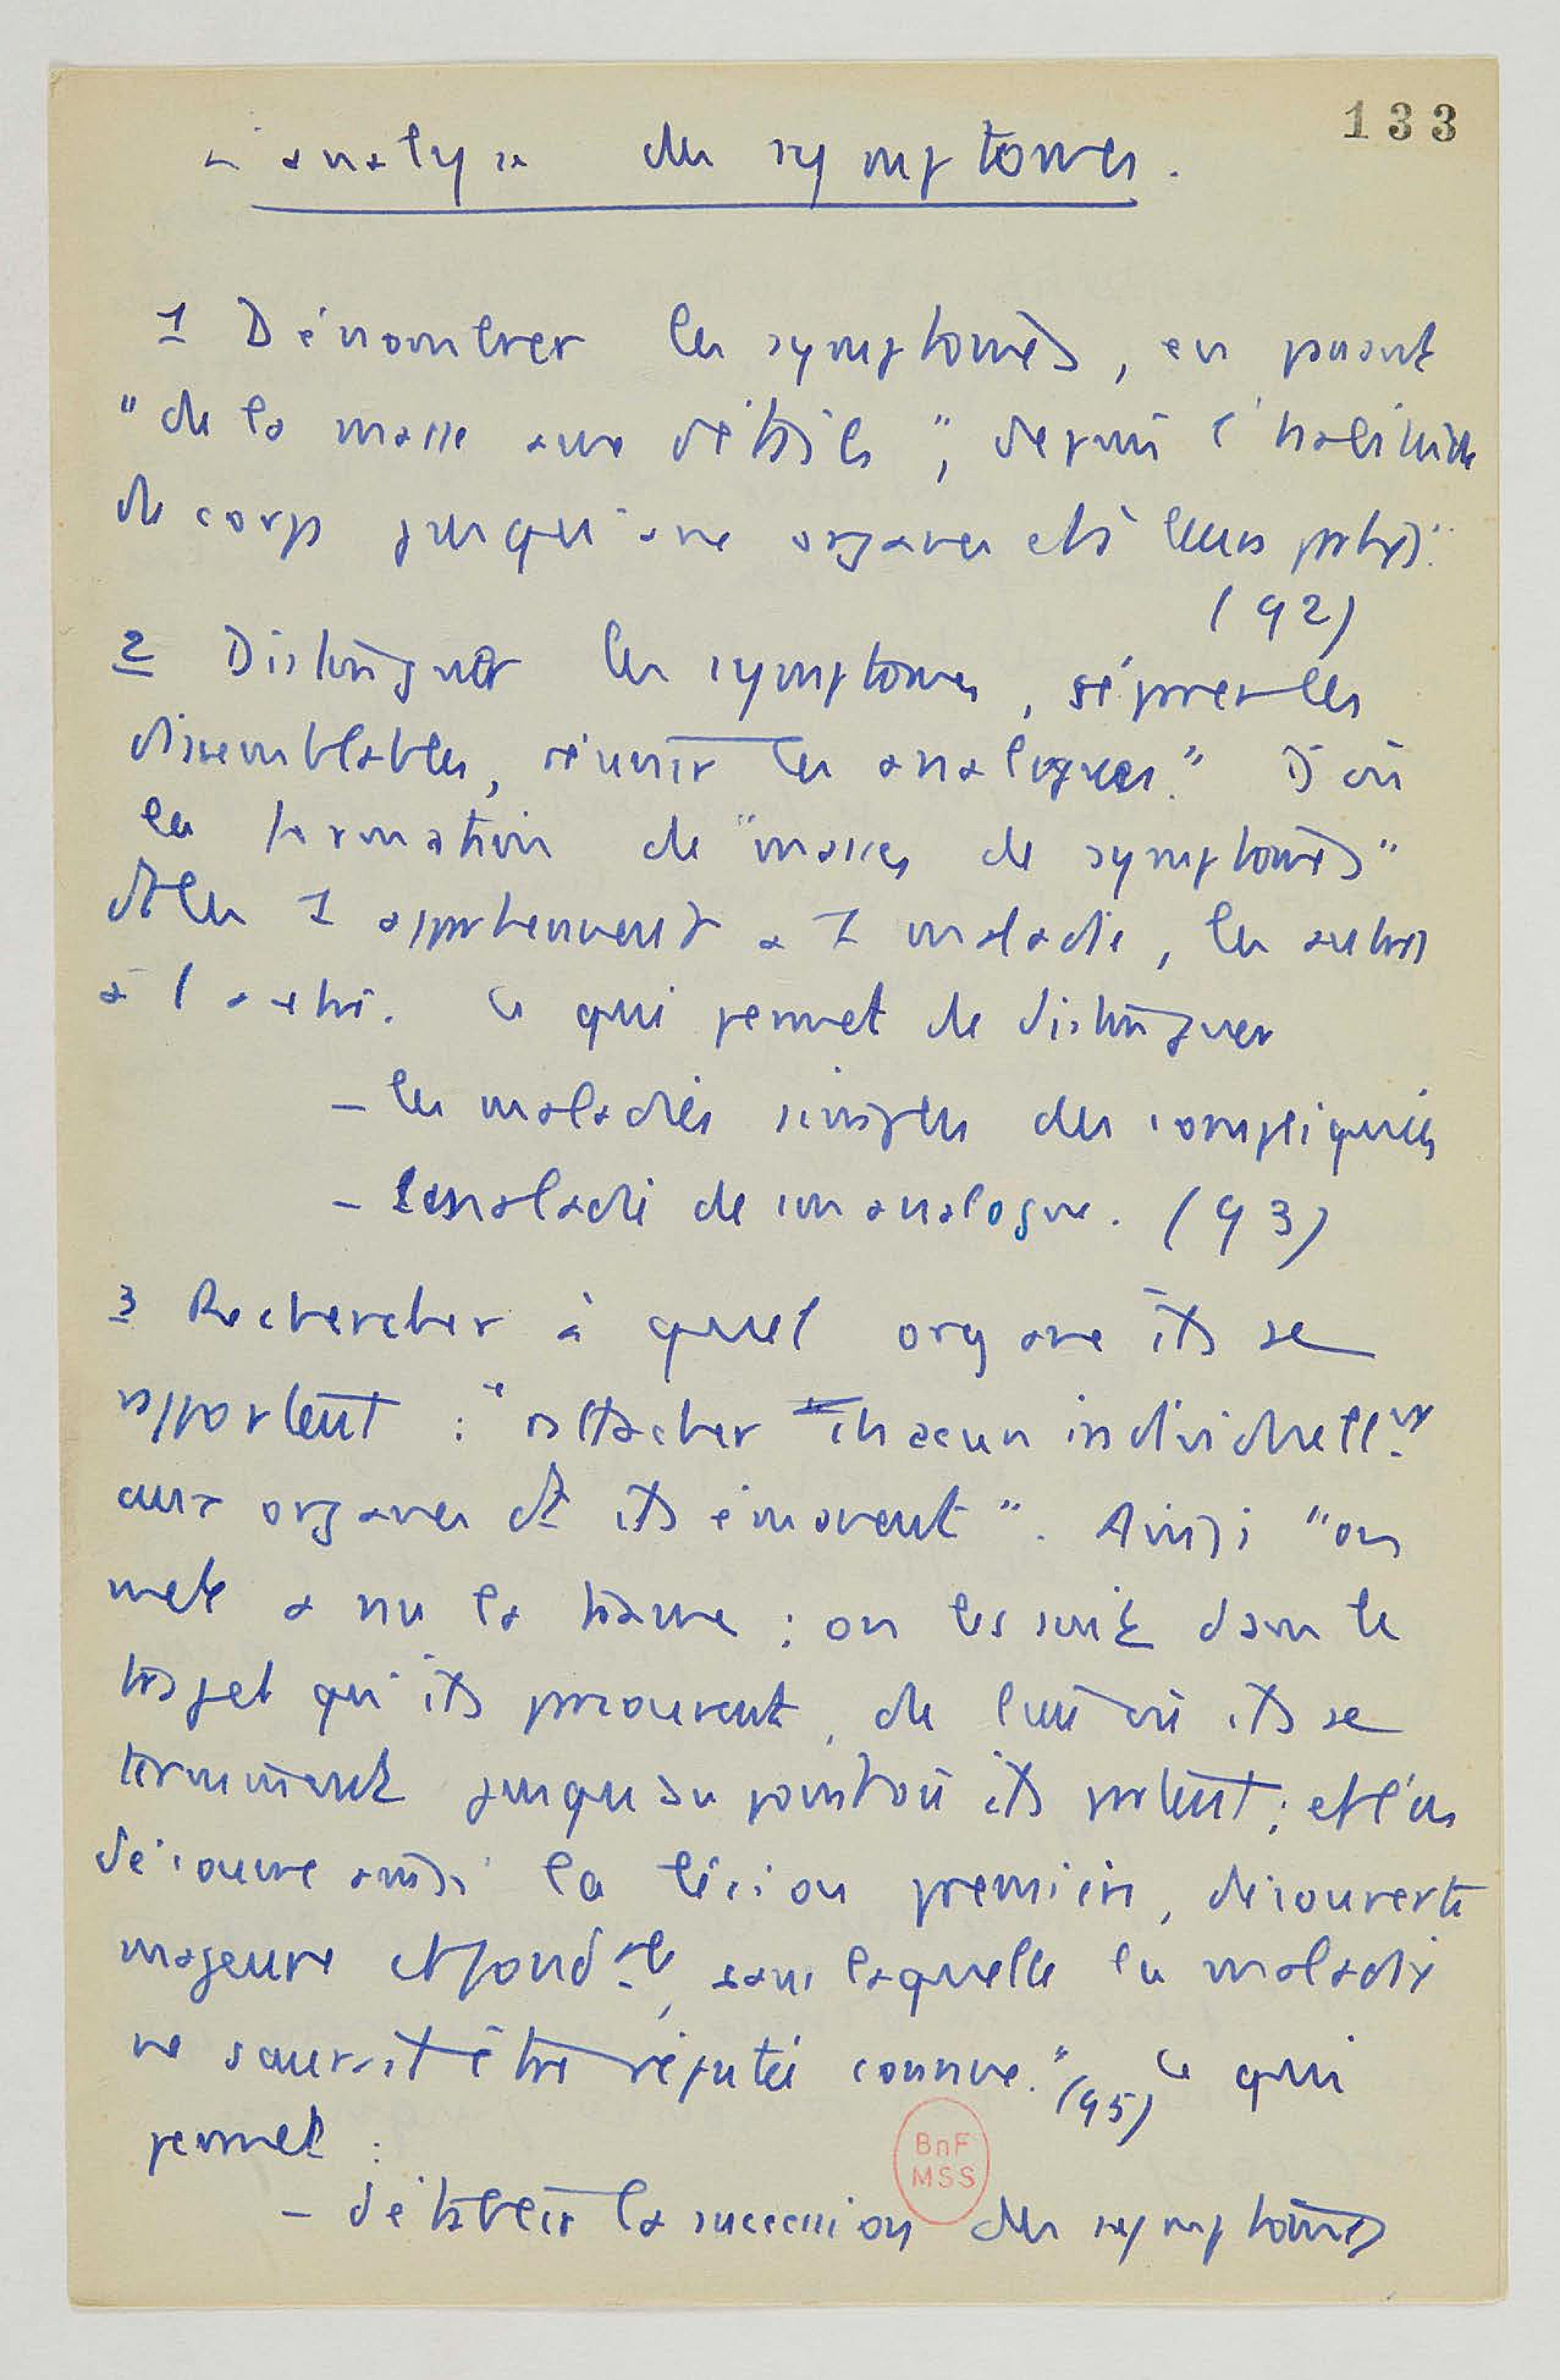 133
L'analyse des symptomes.
1 Dénombrer les symptomes, en passant
"de la masse aux détails", depuis l'habitude
de corps jusqu'aux organes et à leurs parties."
(92)
2 Distinguer les symptomes, séparer les
dissemblables, réunir les analogues." D'où
la formation de "masses de symptomes"
dt les 1 appartiennent a 1 maladie, les autres
à l'autre. Ce qui permet de distinguer
- les maladies simples des compliquées
- la maladie de son analogue. (93)
3 Rechercher à quel organe ils se
rapportent : "rattacher chacun individuellt
aux organes dt ils émanent". Ainsi "on
met a nu la trame ; on les suit dans le
trajet qu'ils parcourent, du lieu où ils se
terminent jusqu'au point où ils partent ; et l'on
découvre ainsi la lésion première, découverte
majeure et fondtale, sans laquelle la maladie
ne saurait être réputée connue." (95) Ce qui
permet :
- d'établir la succession des symptomes
BnF
MSS